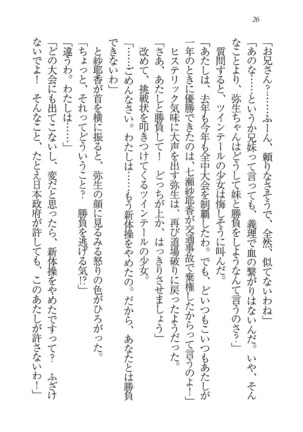 26
「お兄さん？……ふーん、頼りなさそうで、全然、似てないわね」
「あのな〜というか兄妹って言っても、義理で血の繋がりはないんだ。いや、そん
なことより、弥生ちゃんはどうして妹と勝負するなんて言うのさ？」
質問すると、ツインテールの少女は悔しそうに叫んだ。
「あたしは、去年も今年も全中大会を制覇したわ！　でも、どいつもこいつもあたしが
一年のときに優勝できたのは、七瀬紗耶香が交通事故で棄権したからって言うのよ！」
ヒステリック気味に大声を出す弥生は、再び道場破りに戻ったようだった。
「さあ、あたしと勝負して！　どっちが上か、はっきりさせましょう」
改めて、挑戦状を叩きつけてくるツインテールの少女。
「……ごめんなさい。わたしは……もう新体操をやめたの。だから、あなたとは勝負
できないわ」
と紗耶香が首を横に振ると、弥生の顔に見るみる怒りの色がひろがった。
「ちょっと、それってどういうこと？　勝負を逃げる気!?」
「違うわ。わたしは……」
「どの大会にも出てこないし、変だと思ったら、新体操をやめたですって？　ふざけ
ないでよ！　そんなこと、たとえ日本政府が許しても、このあたしが許さないわ！」